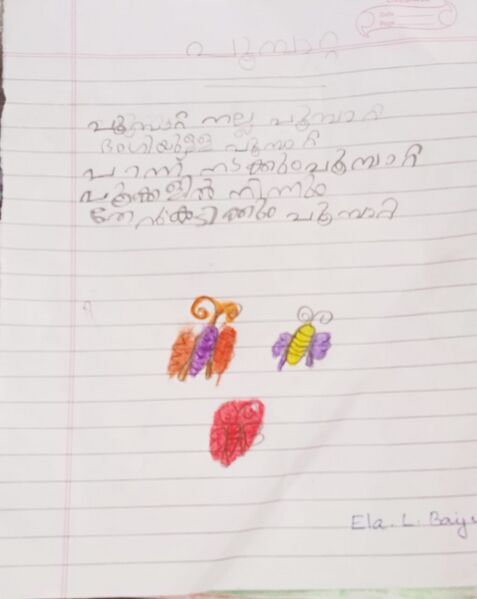 പൂമ്പാറ്റ
പൂമ്പാറ്റ നല്ല പൂമ്പാറ്റ
ഭംഗിയുള്ള പൂമ്പാറ്റ
പറന്ന് നടക്കും പൂമ്പാറ്റ
പൂക്കളിൽ നിന്നും
തേൻ കുടിക്കും പൂമ്പാറ്റ
Ela. L. Baiju